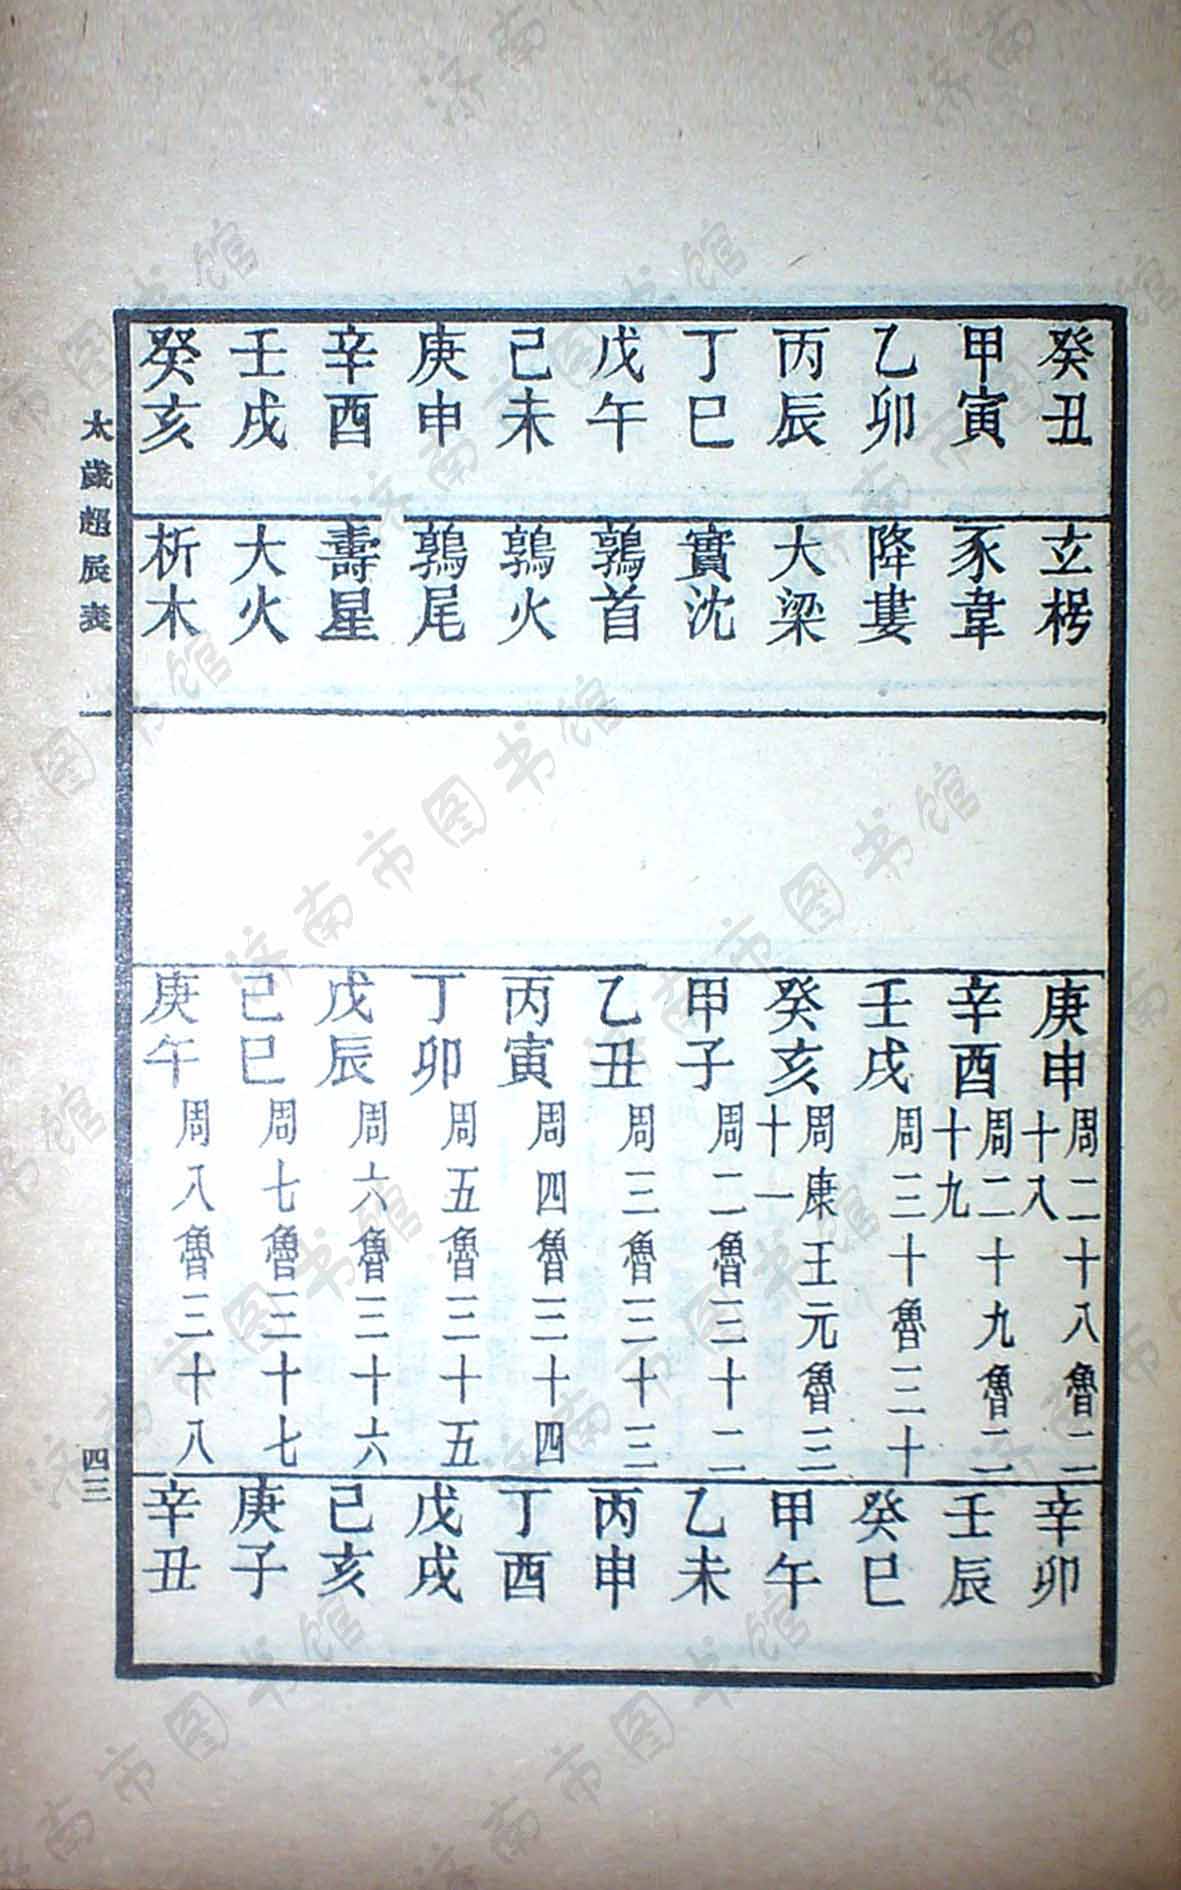 癸丑 玄枵 庚申 周二十八魯二十八 辛卯
甲寅 豕韋 辛酉 周二十九魯二十九 壬辰
乙卯 降婁 壬戌 周三十魯三十 癸巳
丙辰 大梁 癸亥 周康王元魯三十一 甲午
丁巳 實沈 甲子 周二魯三十二 乙未
戊午 鶉首 乙丑 周三魯三十三 丙申
己未 鶉火 丙寅 周四魯三十四 丁酉
庚申 鶉尾 丁卯 周五魯三十五 戊戌
辛酉 壽星 戊辰 周六魯三十六 己亥
壬戌 大火 己巳 周七魯三十七 庚子
癸亥 析木 庚午 周八魯三十八 辛丑
太歲超辰表 一 四三
济南市图书馆